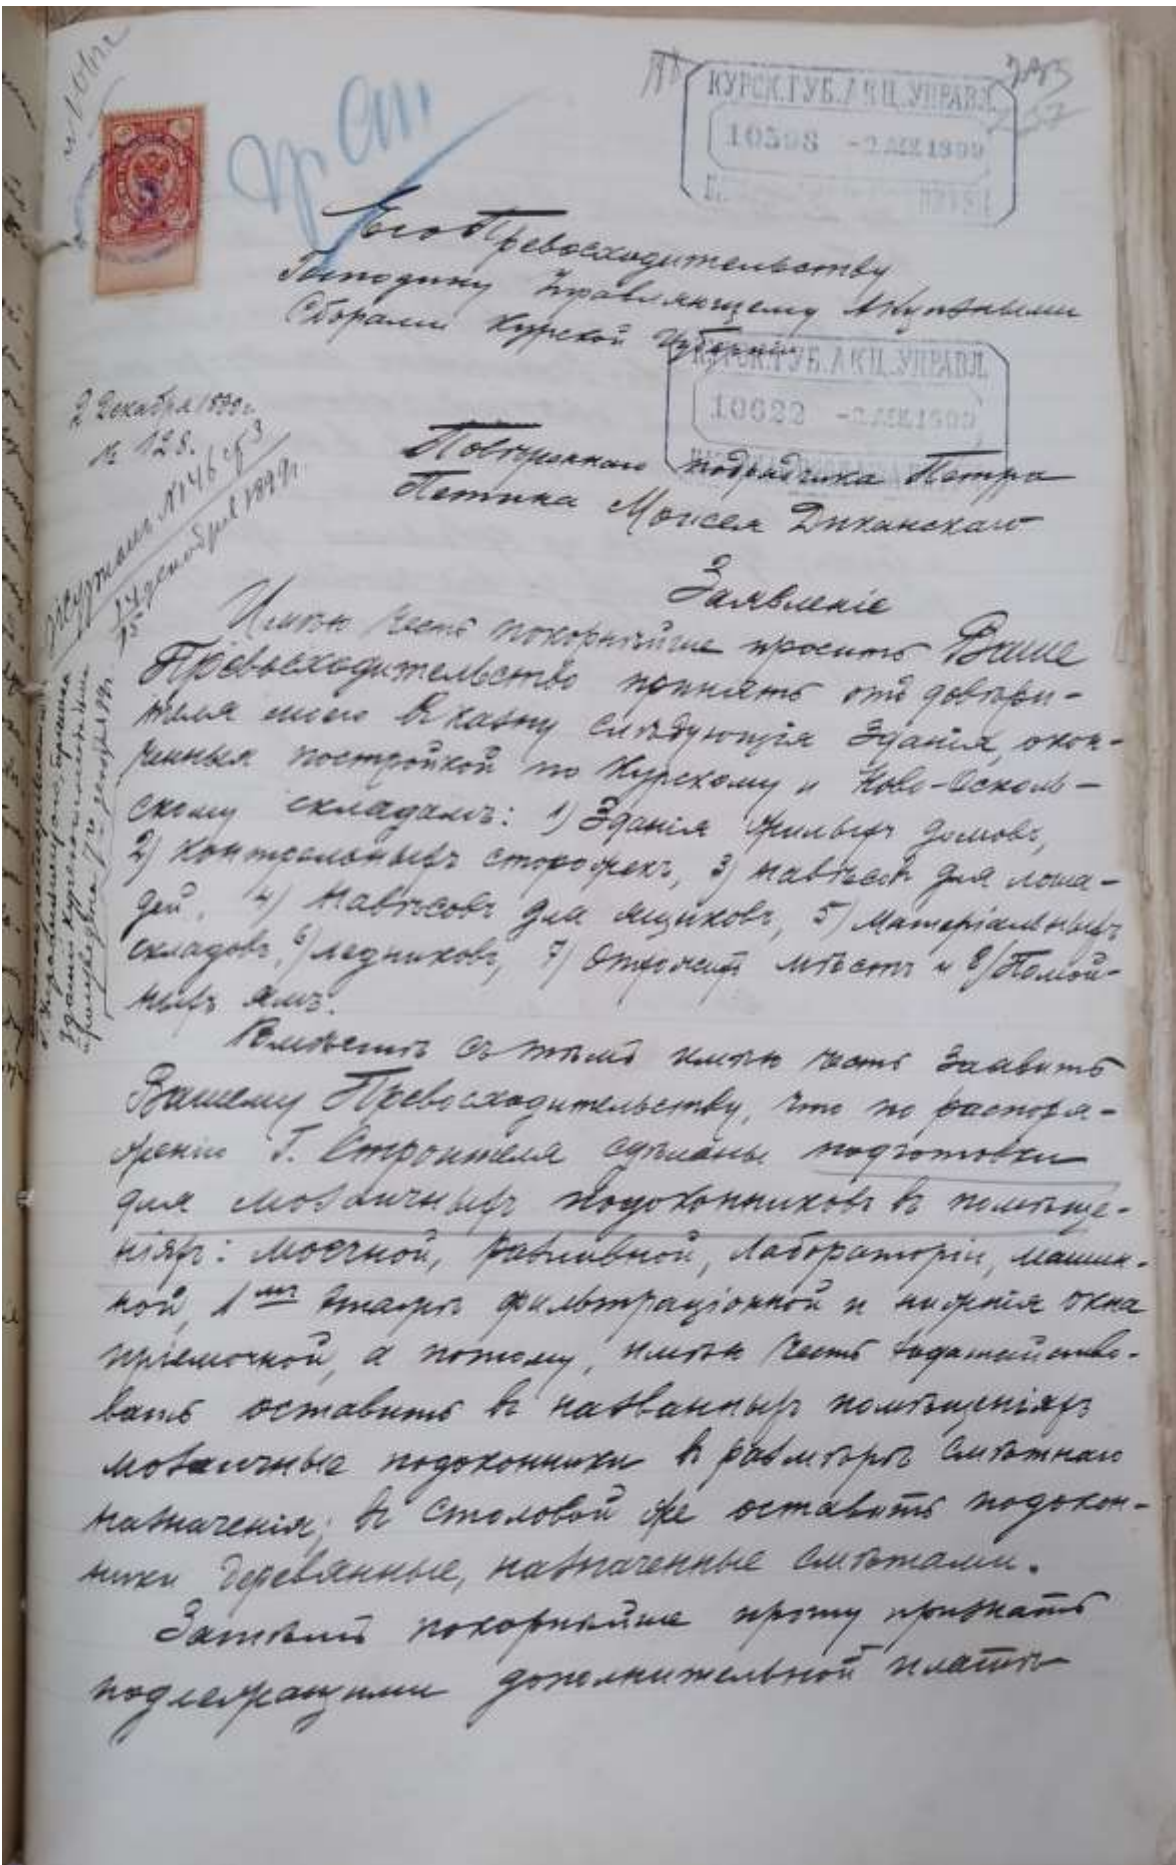 КУРСК.ГУБ.АКЦ.УПРАВЛ.
10598 -2 ДЕК 1899
Его Превосходительству
Господину Управляющему Акцизными
Сборами Курской Губернии
КУРСК.ГУБ.АКЦ.УПРАВЛ.
10622 -2 ДЕК 1899
2 Декабря 1899 г.
№ 128.
Повѣреннаго подрядчика Петра
Петина Моисея Диканскаго
Журналъ №146
декабря 1899 г.
Заявленіе
Имѣю честь покорнѣйше просить Ваше
Превосходительство принять отъ довѣри-
теля моего въ казну слѣдующія Зданія, окон-
ченныя постройкой по Курскому и Ново-Осколь-
скому складамъ: 1) Зданія жилыхъ домовъ,
2) Контрольныхъ сторожекъ, 3) навѣсовъ для лоша-
дей, 4) Навѣсовъ для ящиковъ, 5) Матеріальныхъ
складовъ, 6) ледниковъ, 7) Отхожихъ мѣстъ и 8) Помой-
ныхъ ямъ.
Вмѣстѣ съ тѣмъ имѣю честь заявить
Вашему Превосходительству, что по распоря-
женію Г. Строителя сдѣланы подготовки
для мозаичныхъ подоконниковъ въ помѣще-
ніяхъ: моечной, разливной, Лабораторіи, машин-
ной, 1мъ этажѣ фильтраціонной и нижнія окна
пріемочной, а потому, имѣю честь ходатайство-
вать оставить въ названныхъ помѣщеніяхъ
мозаичные подоконники въ размѣрѣ смѣтнаго
назначенія; въ столовой же оставить подокон-
ники деревянные, назначенные смѣтами.
Затѣмъ покорнѣйше прошу признать
подлежащими дополнительной платѣ